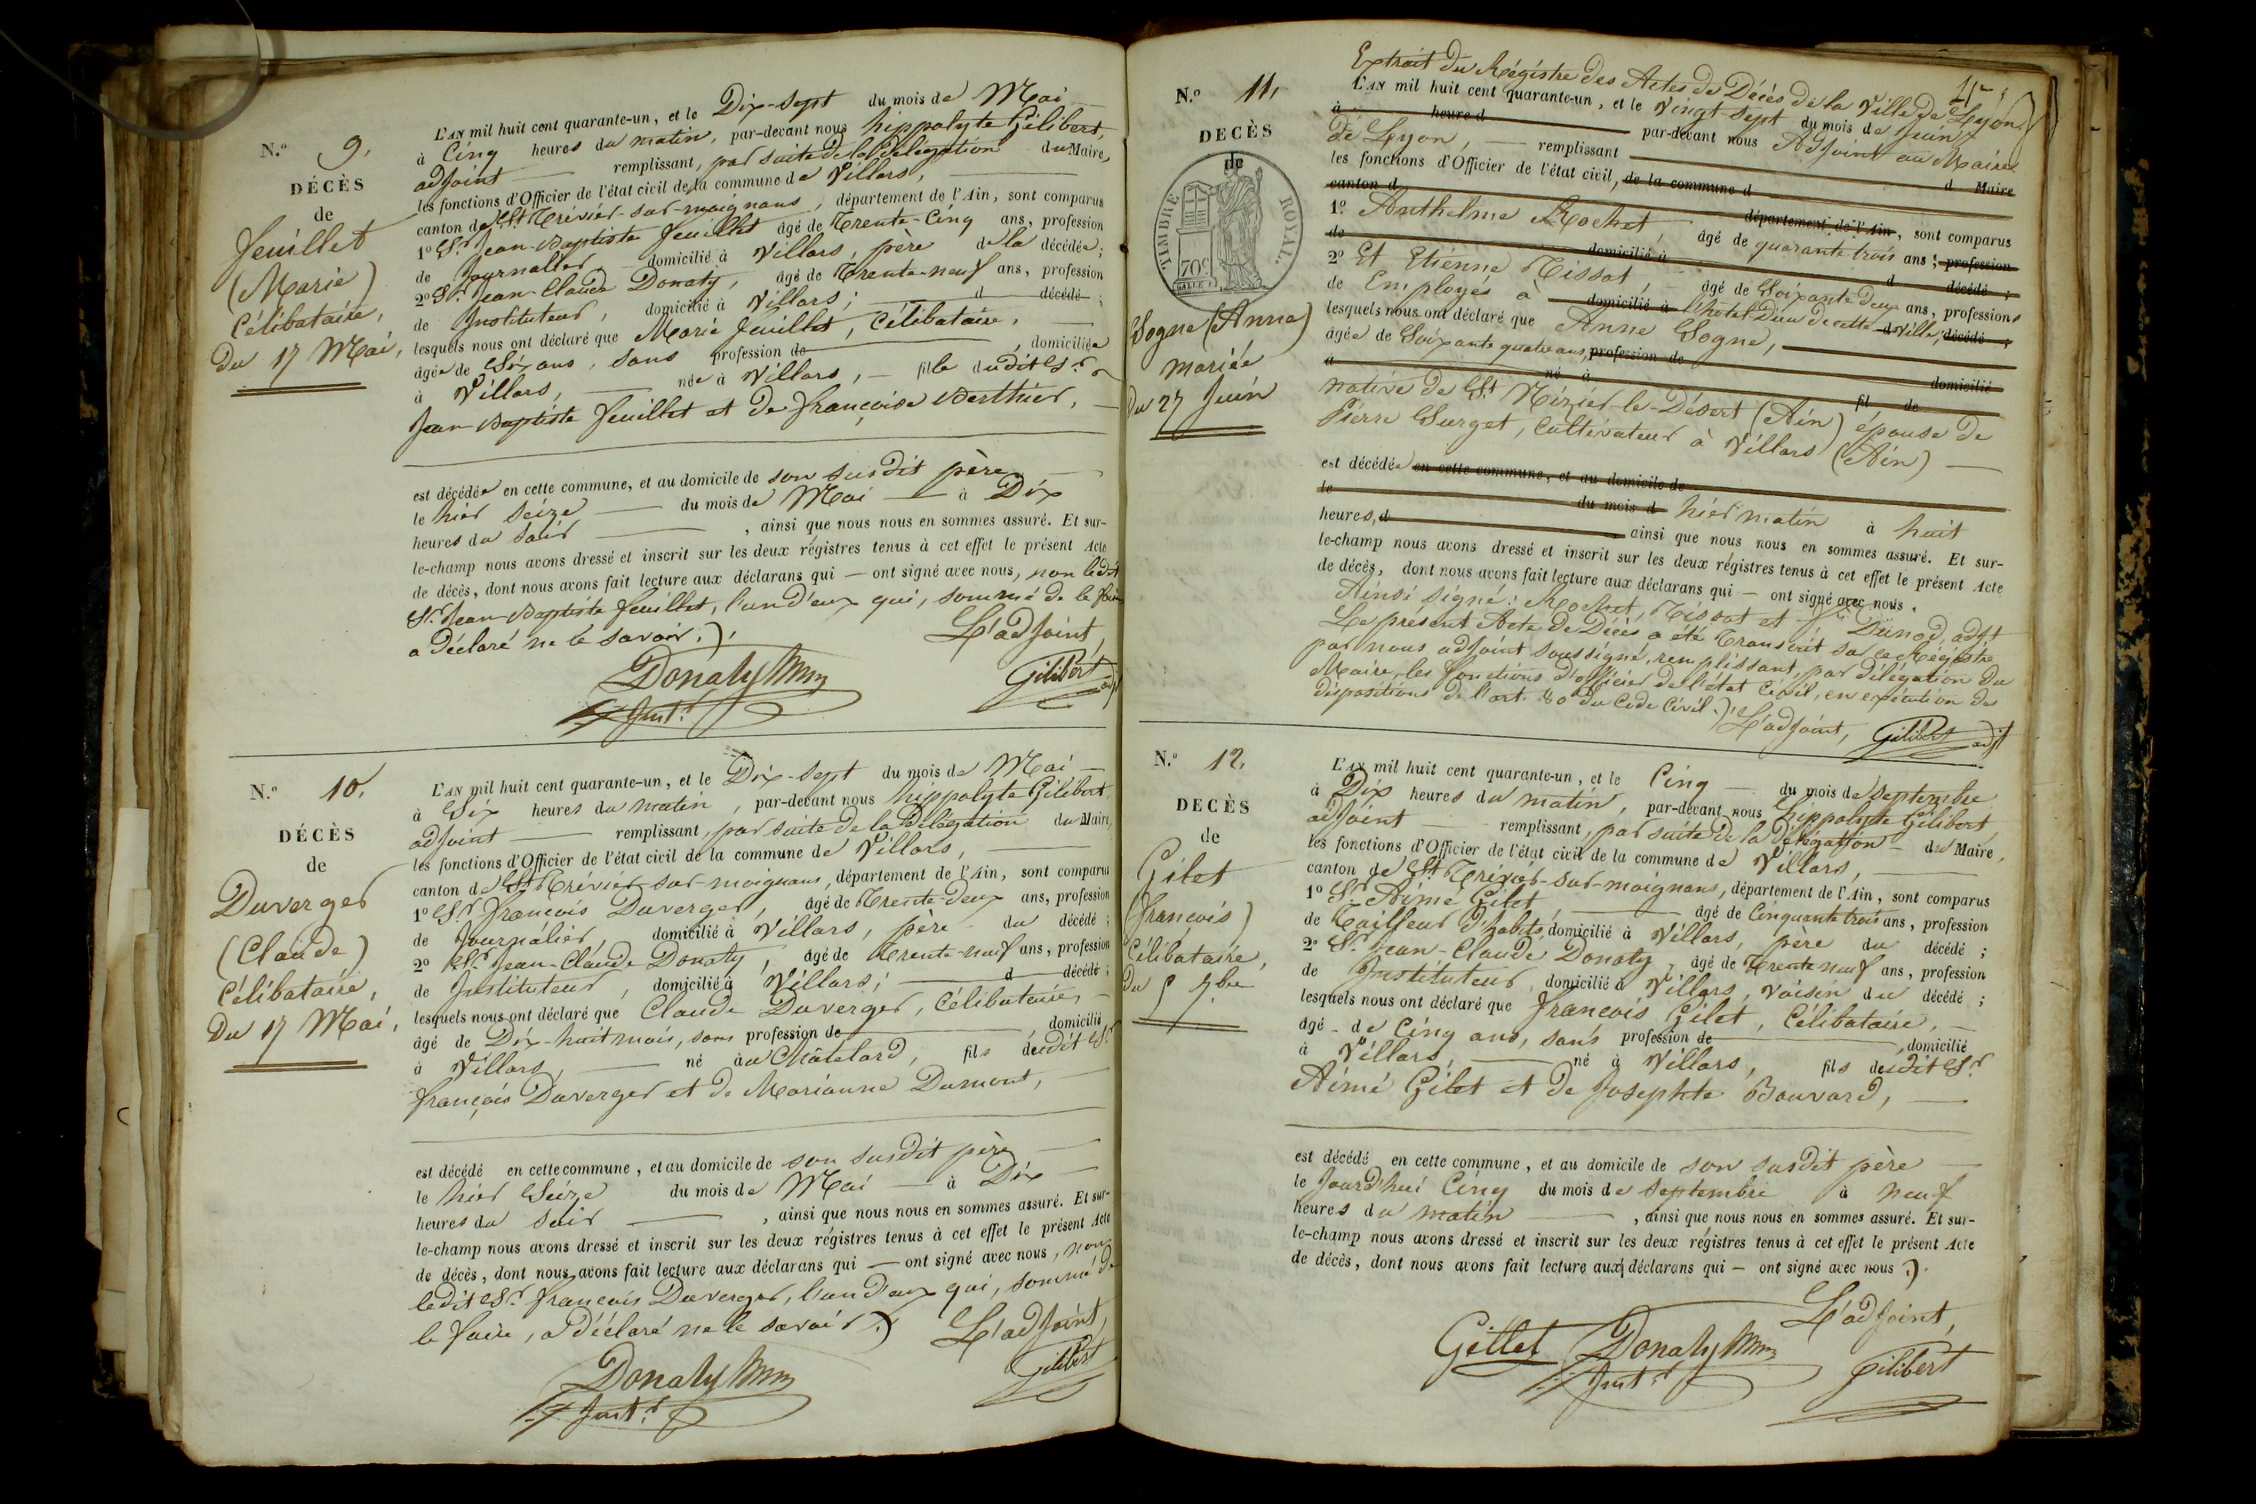 N.º 9.
DÉCÈS
de
Feuillet
(Marie)
Célibataire,
Du 17 Mai,
L'AN mil huit cent quarante-un, et le Dix-Sept du mois de Mai
à Cinq heures du matin, par-devant nous hippolyte Gilibert,
adjoint remplissant, par suite de la Délégation du Maire,
les fonctions d'Officier de l'état civil de la commune de Villars,
canton de St Trivier-sur-moignans, département de l'Ain, sont comparus
1º Sr Jean-Baptiste Feuillet âgé de Trente-Cinq ans, profession
de Journalier domicilié à Villars, père de la décédée;
2º Sr Jean-Claude Donaty, âgé de Trente-neuf ans, profession
de Instituteur, domicilié à Villars; d décédé ;
lesquels nous ont déclaré que Marie Feuillet, Célibataire,
âgée de Six ans, sans profession de , domiciliée
à Villars, née à Villars, fille dudit Sr
Jean-Baptiste Feuillet et de françoise Berthier,
est décédée en cette commune, et au domicile de son susdit père
le hier seize du mois de Mai à Dix
heures du soir , ainsi que nous nous en sommes assuré. Et sur-
le-champ nous avons dressé et inscrit sur les deux régistres tenus à cet effet le présent Acte
de décès, dont nous avons fait lecture aux déclarans qui — ont signé avec nous, non ledit
Sr Jean-Baptiste Feuillet, l'un d'eux qui, sommé de le faire
a déclaré ne le savoir.
L'adjoint,
Donaty
Instr
Gilibert adjt
N.º 10.
DÉCÈS
de
Duverger
(Claude)
Célibataire,
Du 17 Mai,
L'AN mil huit cent quarante-un, et le Dix-Sept du mois de Mai
à Six heures du matin, par-devant nous hippolyte Gilibert
adjoint remplissant, par suite de la Délégation du Maire,
les fonctions d'Officier de l'état civil de la commune de Villars,
canton de St Trivier-sur-moignans, département de l'Ain, sont comparus
1º Sr françois Duverger, âgé de Trente-Deux ans, profession
de Journalier, domicilié à Villars, père du décédé ;
2º Sr Jean-Claude Donaty, âgé de Trente-neuf ans, profession
de Instituteur, domicilié à Villars; d décédé ;
lesquels nous ont déclaré que Claude Duverger, Célibataire,
âgé de Dix-huit mois, sans profession de , domicilié
à Villars, né au Châtelard, fils dudit Sr
françois Duverger et de Marianne Dumont,
est décédé en cette commune, et au domicile de son susdit père
le hier Seize du mois de Mai à Dix
heures du soir , ainsi que nous nous en sommes assuré. Et sur-
le-champ nous avons dressé et inscrit sur les deux régistres tenus à cet effet le présent Acte
de décès, dont nous avons fait lecture aux déclarans qui — ont signé avec nous, non
ledit Sr françois Duverger, l'un d'eux qui, sommé de
le faire, a déclaré ne le savoir.
L'adjoint,
Donaty
Instr
Gilibert
N.º 11.
DECÈS
de
TIMBRE ROYAL
70c
Sogne (Anne)
mariée
du 27 Juin
Extrait du Régistre des Actes de Décès de la Ville de Lyon
L'AN mil huit cent quarante-un, et le vingt-sept du mois de Juin
à heure d par-devant nous Adjoint au Maire
de Lyon, remplissant d Maire
les fonctions d'Officier de l'état civil, de la commune d
canton d département de l'Ain, sont comparus
1º Anthelme Rochet, âgé de quarante trois ans ; profession
de domicilié à d décédé ;
2º Et Etienne Tissot, âgé de Soixante deux ans, professions
de Employés à domicilié à l'hôtel Dieu de cette d ville, décédé ;
lesquels nous ont déclaré que Anne Sogne,
âgée de Soixante quatre ans, profession de domicilié
à né à fil de
native de St Nizier-le-Désert (Ain) épouse de
Pierre Surget, Cultivateur à Villars (Ain)
est décédée en cette commune, et au domicile de
le du mois d hier matin à huit
heures, d ainsi que nous nous en sommes assuré. Et sur-
le-champ nous avons dressé et inscrit sur les deux régistres tenus à cet effet le présent Acte
de décès, dont nous avons fait lecture aux déclarans qui — ont signé avec nous.
Ainsi signé : Rochet, Tissot et Dunod, adjt
Le présent Acte de Décès a été Transcrit sur ce Régistre
par nous adjoint soussigné, remplissant, par délégation du
Maire, les fonctions d'officier de l'état Civil, en exécution des
dispositions de l'art. 80 du Code Civil.
L'adjoint, Gilibert adjt
N.º 12.
DECÈS
de
Gilet
(françois)
Célibataire,
Du 5 7bre
L'AN mil huit cent quarante-un, et le Cinq du mois de Septembre
à Dix heures du matin, par-devant nous hippolyte Gilibert
adjoint remplissant, par suite de la Délégation du Maire,
les fonctions d'Officier de l'état civil de la commune de Villars,
canton de St Trivier-sur-moignans, département de l'Ain, sont comparus
1º Sr Aimé Gilet, âgé de Cinquante trois ans, profession
de Tailleur d'habits, domicilié à Villars, père du décédé ;
2º Sr Jean-Claude Donaty, âgé de Trente neuf ans, profession
de Instituteur, domicilié à Villars, voisin du décédé ;
lesquels nous ont déclaré que françois Gilet, Célibataire,
âgé de Cinq ans, sans profession de , domicilié
à Villars, né à Villars, fils dudit Sr
Aimé Gilet et de Josephte Bouvard,
est décédé en cette commune, et au domicile de son susdit père
le Jourd'hui Cinq du mois de Septembre à neuf
heures du matin , ainsi que nous nous en sommes assuré. Et sur-
le-champ nous avons dressé et inscrit sur les deux régistres tenus à cet effet le présent Acte
de décès, dont nous avons fait lecture aux déclarans qui — ont signé avec nous.
L'adjoint,
Gillet Donaty
Instr
Gilibert